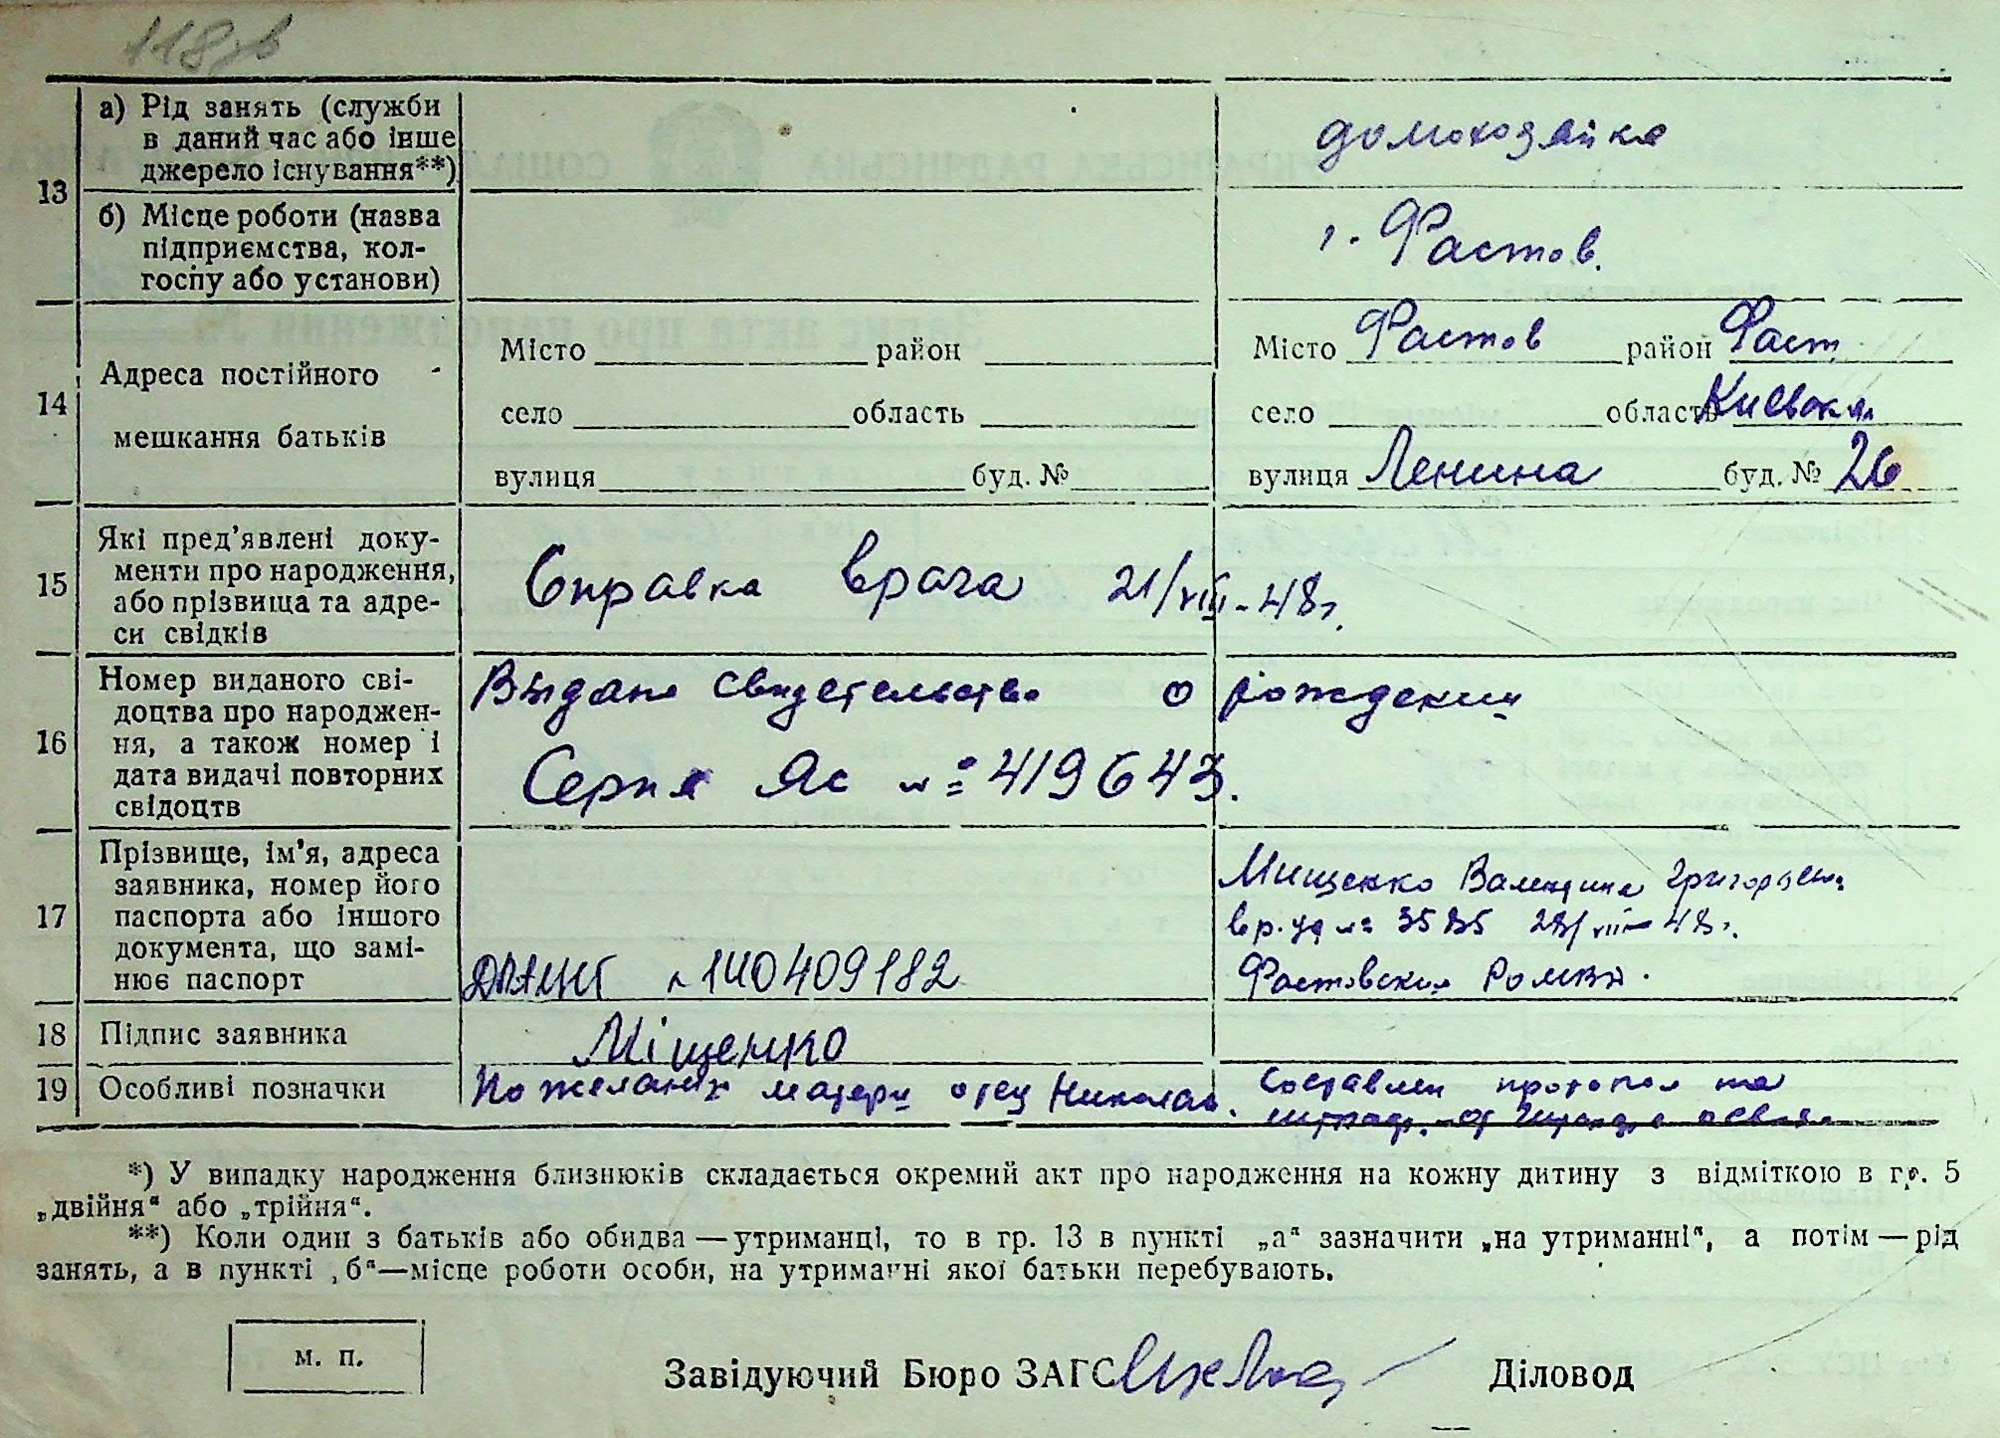 118зв
13
а) Рід занять (служби
в даний час або інше
джерело існування**)
домохозяйка
б) Місце роботи (назва
підприємства, кол-
госпу або установи)
г. Фастов.
14
Адреса постійного
мешкання батьків
Місто район
село область
вулиця буд. №
Місто Фастов район Фаст.
село область Киевская
вулиця Ленина буд. № 26
15
Які пред'явлені доку-
менти про народження,
або прізвища та адре-
си свідків
Справка врача 21/VIII-48г.
16
Номер виданого сві-
доцтва про народжен-
ня, а також номер і
дата видачі повторних
свідоцтв
Выдано свидетельство о рождении
Серия Яс № 419643.
17
Прізвище, ім'я, адреса
заявника, номер його
паспорта або іншого
документа, що замі-
нює паспорт
140409182
Мищенко Валентина Григорьевна
вр. уд № 28/VIII-48г.
Фастовским
18
Підпис заявника
Міщенко
19
Особливі позначки
По желанию матери отец Николай.
Составлен протокол на
*) У випадку народження близнюків складається окремий акт про народження на кожну дитину з відміткою в гр. 5
„двійня“ або „трійня“.
**) Коли один з батьків або обидва — утриманці, то в гр. 13 в пункті „а“ зазначити „на утриманні“, а потім — рід
занять, а в пункті „б“—місце роботи особи, на утриманні якої батьки перебувають.
м. п.
Завідуючий Бюро ЗАГС
Діловод